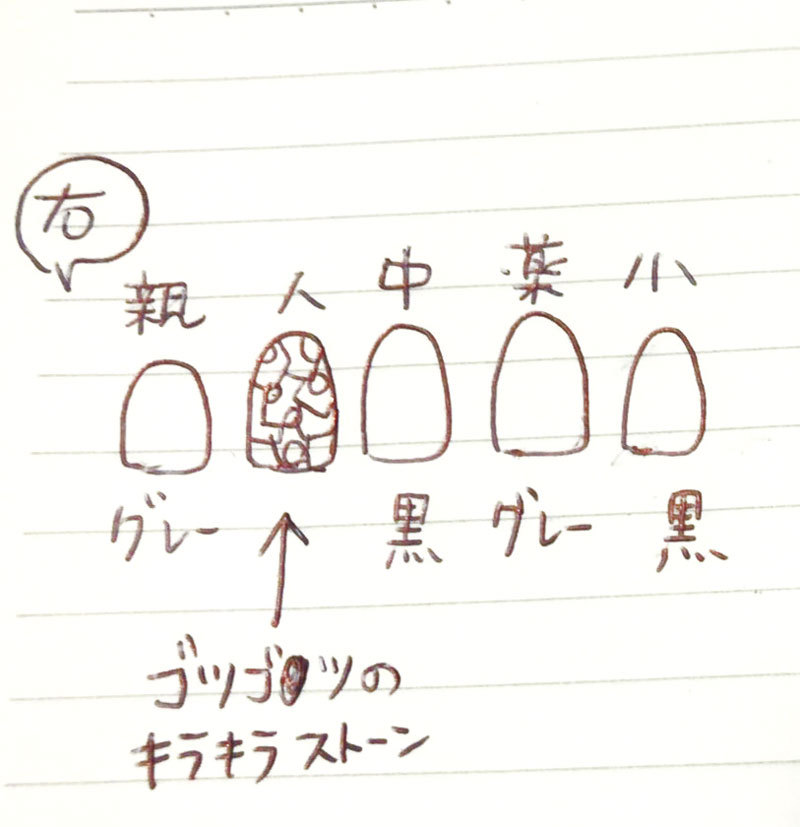 右
親 人 中 薬 小
グレー 黒 グレー 黒
ゴツゴツの
キラキラストーン